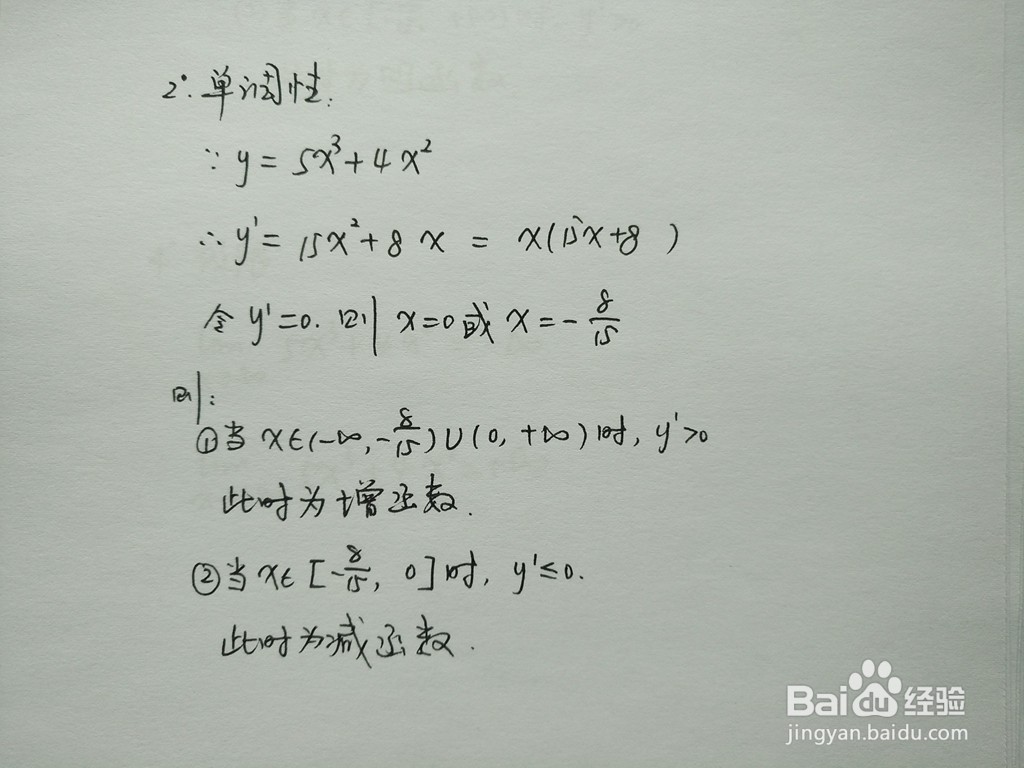 2°.单调性:
∵ y = 5x³+4x²
∴ y' = 15x²+8x = x(15x+8)
令 y'=0. 则 x=0或 x=-8/15
则:
①当 x∈(-∞,-8/15)∪(0,+∞)时, y'>0
此时为增函数.
②当 x∈[-8/15, 0]时, y'≤0.
此时为减函数.
Bai du 经验
jingyan.baidu.com